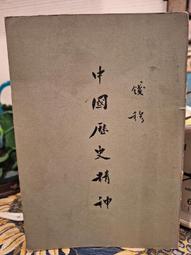 錢穆
中國歷史精神